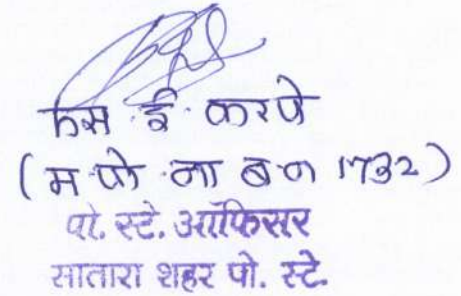 एस ई करपे
(म पो ना ब न 1732)
पो. स्टे. ऑफिसर
सातारा शहर पो. स्टे.